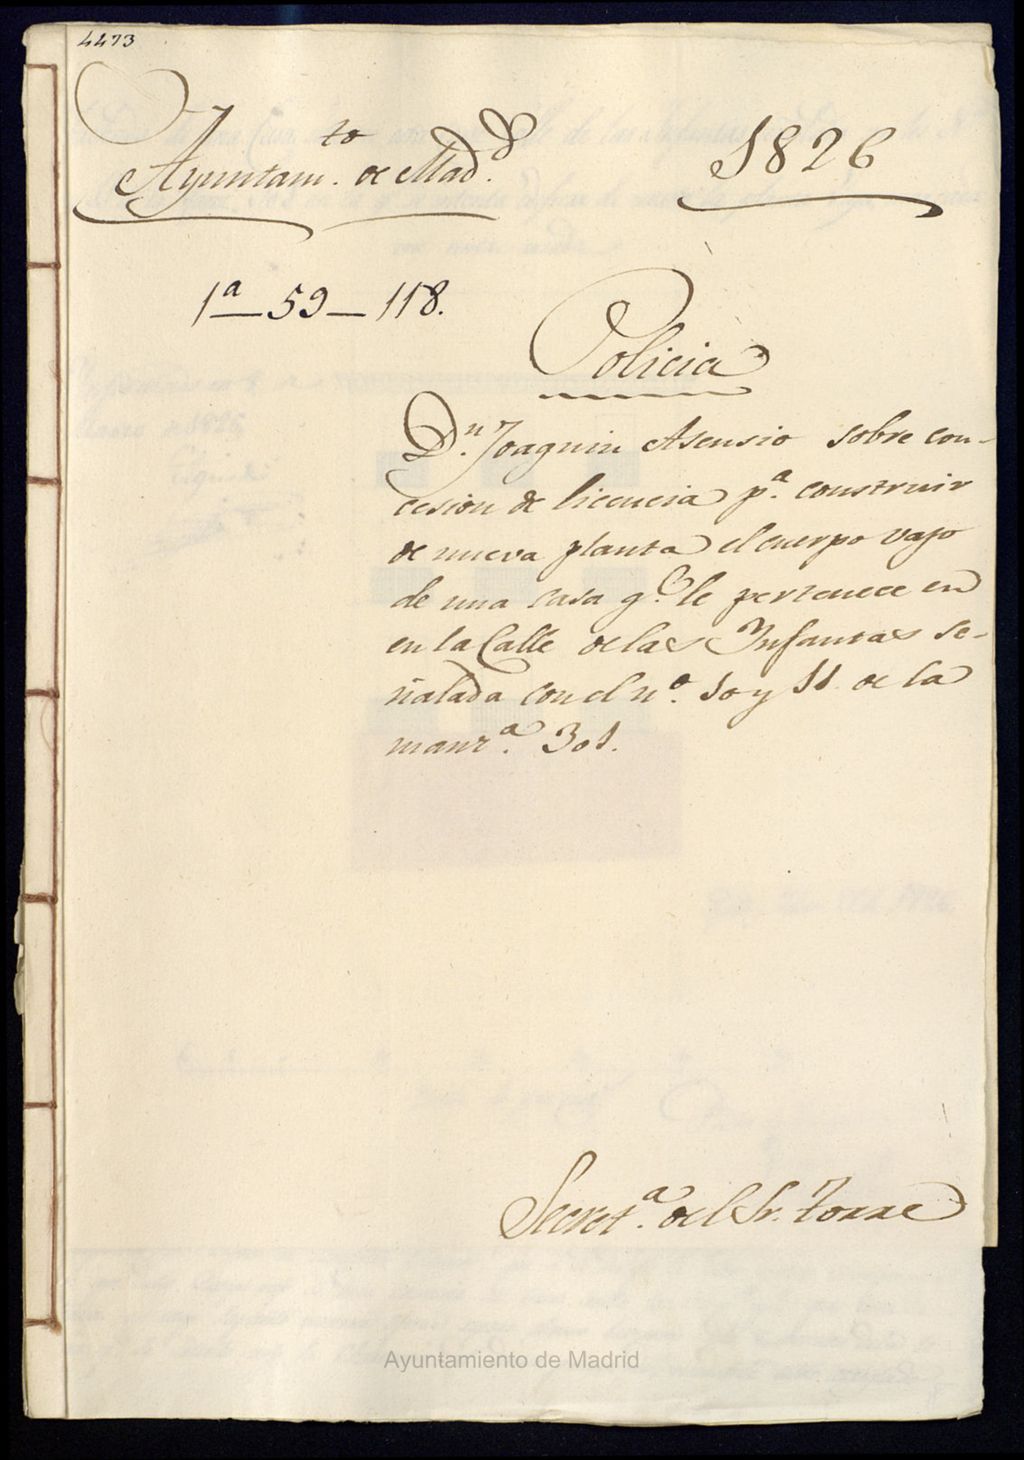 4473
Ayuntam.to de Mad.d
1826
1a—59—118.
Policia
D.n Joaquin Asensio sobre con-
cesion de licencia p.a construir
de nueva planta el cuerpo vajo
de una casa q.e le pertenece en
en la Calle de las Infantas se-
ñalada con el n.o 10 y 11 de la
manz.a 301.
Secret.a del Sr. Torre
Ayuntamiento de Madrid